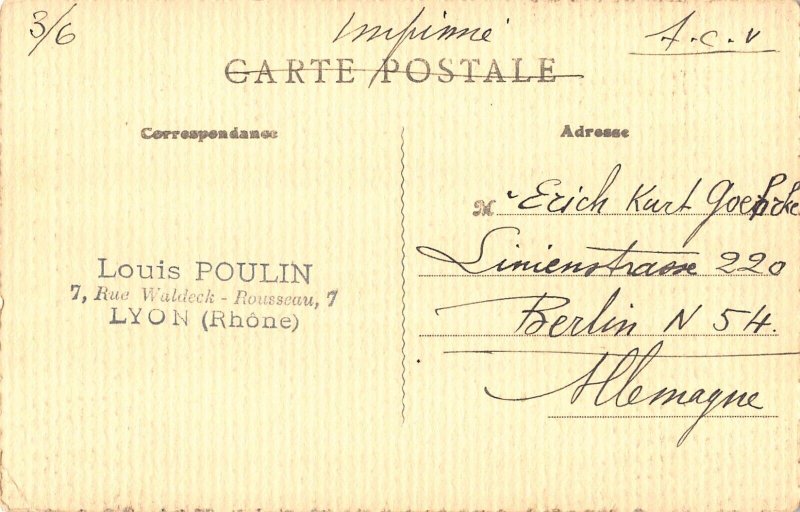 3/6
Imprimé
A.C.V
CARTE POSTALE
Correspondance
Adresse
M Erich Kurt
Linienstrasse 220
Berlin N 54.
Allemagne
Louis POULIN
7, Rue Waldeck - Rousseau, 7
LYON (Rhône)